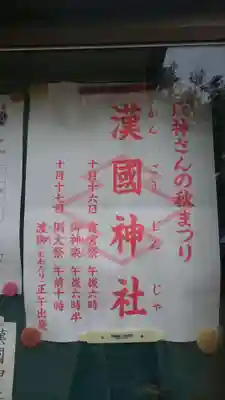 神さんの秋まつり
漢國神社
かん ごう じん じゃ
十月十六日 宵宮祭 午後六時
御神楽 午後六時半
十月十七日 例大祭 午前十時
渡御 正午出発
漢國神